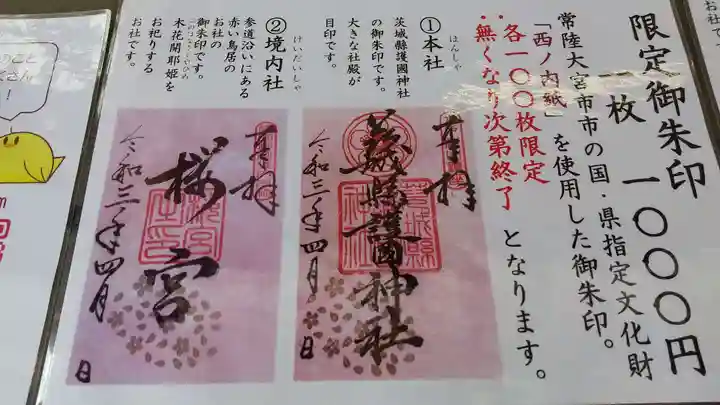 限定御朱印
一枚 一〇〇〇円
常陸大宮市市の国・県指定文化財
「西ノ内紙」を使用した御朱印。
各一〇〇枚限定
無くなり次第終了となります。
①本社
ほんしゃ
茨城縣護國神社
の御朱印です。
大きな社殿が
目印です。
②境内社
けいだいしゃ
参道沿いにある
赤い鳥居の
お社の
御朱印です。
木花開耶姫を
このはなさくやひめ
お祀りする
お社です。
奉拝
茨城縣護國神社
令和三年四月 日
奉拝
桜宮
令和三年四月 日
のこと
さん
！